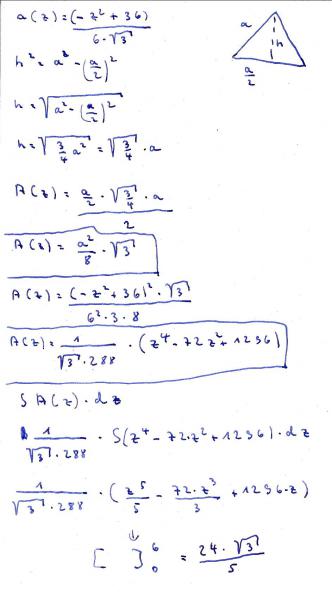 a(z) = (-z² + 36) / 6·√3
h² = a² - (a/2)²
a
h
a/2
h = √(a² - (a/2)²)
h = √(3/4 a²) = √(3/4) · a
A(z) = (a/2 · √(3/4) · a) / 2
A(z) = a²/8 · √3
A(z) = ((-z² + 36)² · √3) / (6² · 3 · 8)
A(z) = 1/(√3 · 288) · (z⁴ - 72z² + 1296)
S A(z) · dz
1/(√3 · 288) · S(z⁴ - 72·z² + 1296) · dz
1/(√3 · 288) · (z⁵/5 - 72·z³/3 + 1296·z)
↓
[ ]₀⁶ = 24·√3 / 5